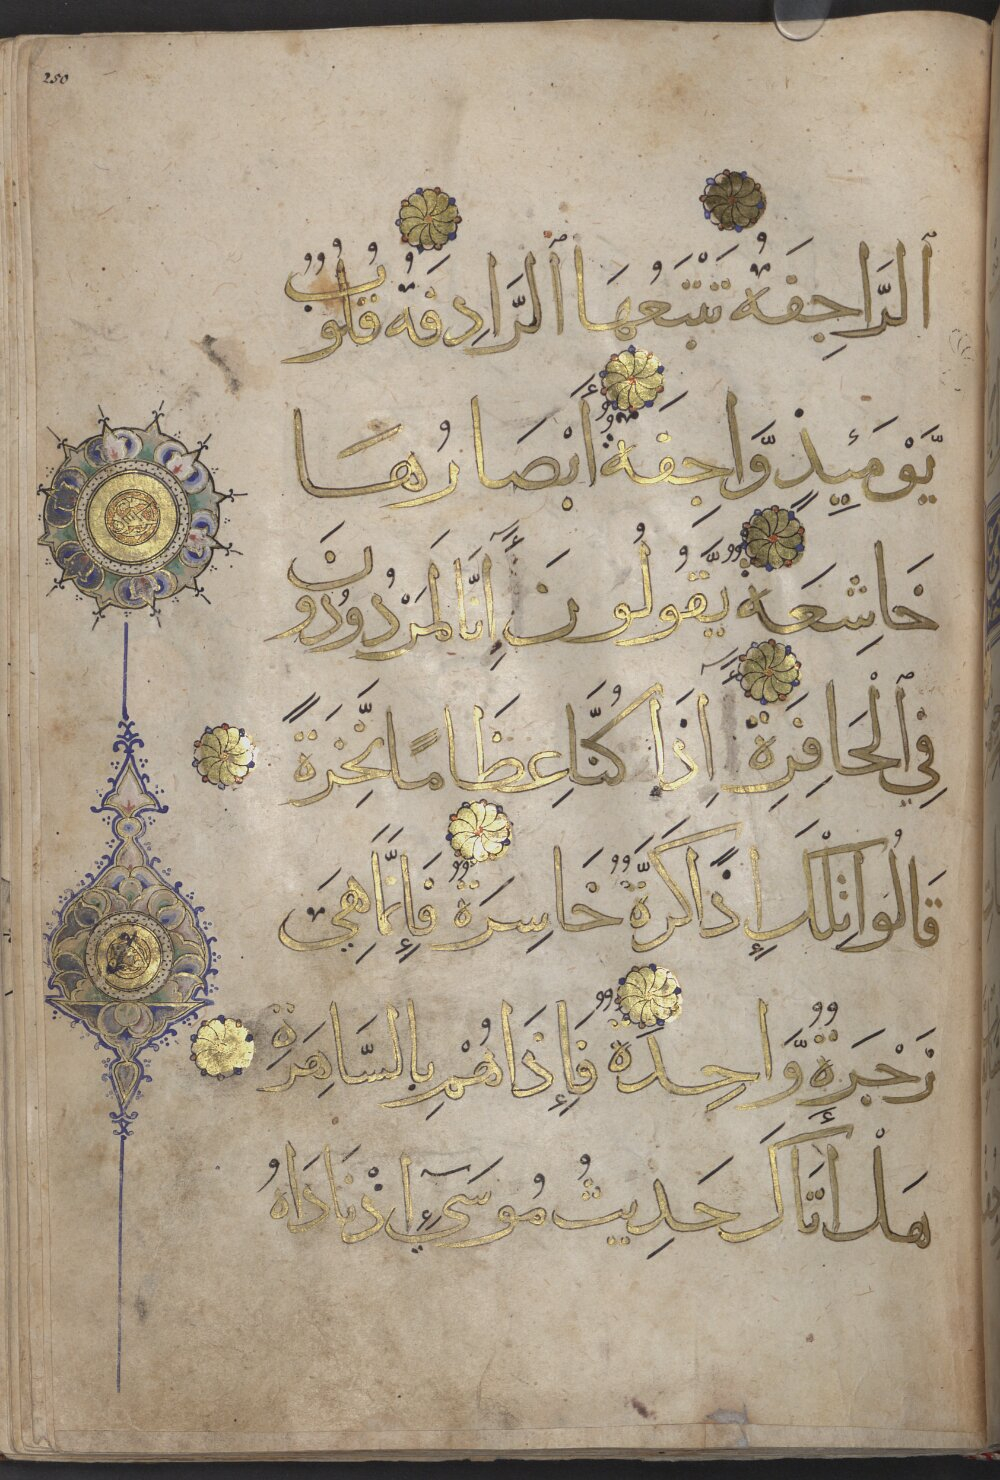 250
ٱلرَّاجِفَةُ تَتْبَعُهَا ٱلرَّادِفَةُ قُلُوبٌ
يَّوْمَئِذٍ وَّاجِفَةٌ أَبْصَارُهَا
خَاشِعَةٌ يَّقُولُونَ أَإِنَّا لَمَرْدُودُونَ
فِي ٱلْحَافِرَةِ أَإِذَا كُنَّا عِظَامًا نَّخِرَةً
قَالُوا تِلْكَ إِذًا كَرَّةٌ خَاسِرَةٌ فَإِنَّمَا هِيَ
زَجْرَةٌ وَّاحِدَةٌ فَإِذَا هُمْ بِالسَّاهِرَةِ
هَلْ أَتَاكَ حَدِيثُ مُوسَىٰٓ إِذْ نَادَاهُ